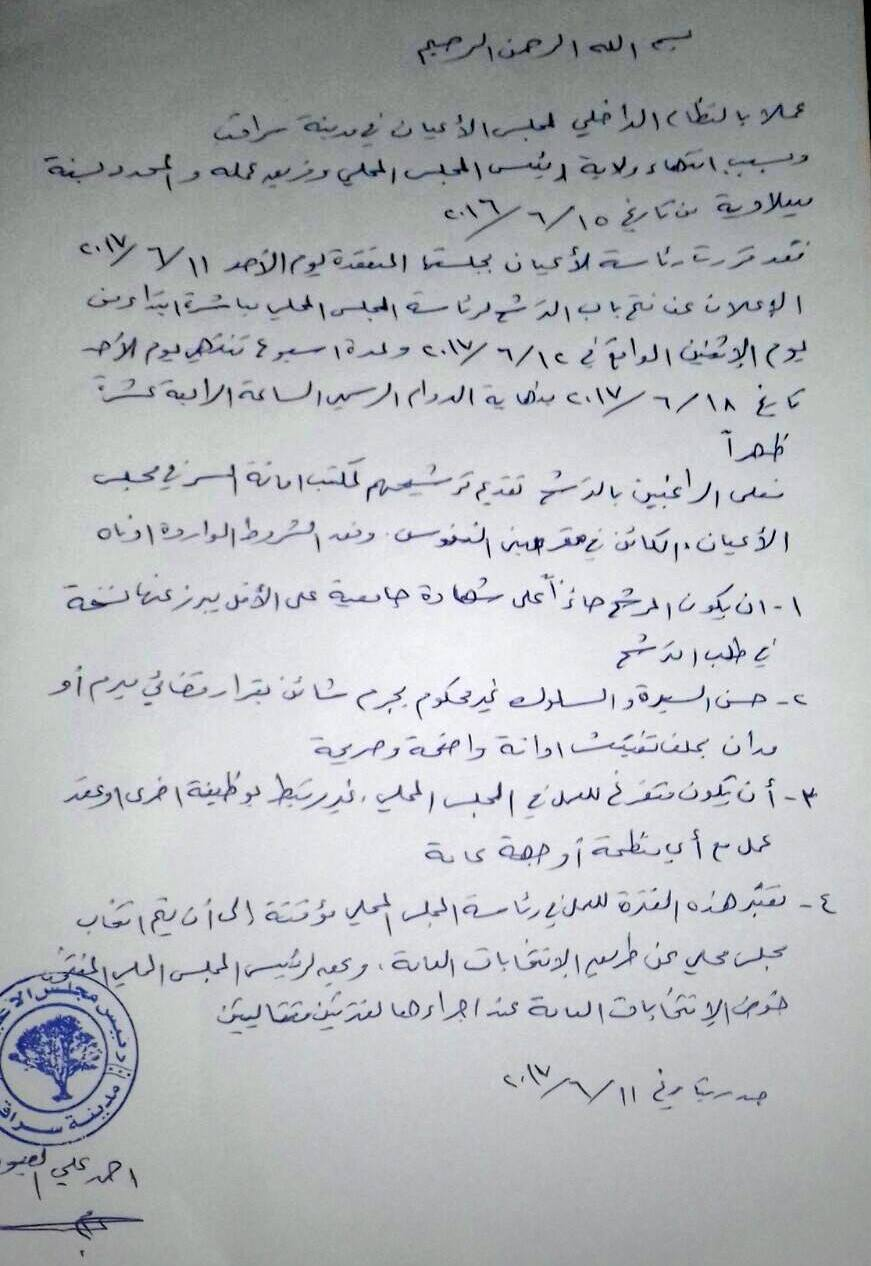 بسم الله الرحمن الرحيم
عملا بالنظام الداخلي لمجلس الأعيان في مدينة سراقب
وبسبب انتهاء ولاية رئيس المجلس المحلي وفريق عمله والمحدد لسنة
ميلادية من تاريخ ١٥/٦/٢٠١٦
فقد قررت رئاسة الأعيان بجلستها المنعقدة يوم الأحد ١١/٦/٢٠١٧
الإعلان عن فتح باب الترشح لرئاسة المجلس المحلي مباشرة ابتداء من
يوم الإثنين الواقع في ١٢/٦/٢٠١٧ ولمدة اسبوع تنتهي يوم الأحد
تاريخ ١٨/٦/٢٠١٧ بنهاية الدوام الرسمي الساعة الرابعة عشرة
ظهراً
فعلى الراغبين بالترشح تقديم ترشيحهم لمكتب امانة السر في مجلس
الأعيان، الكائن في مقر مبنى النفوس. وفق الشروط الواردة ادناه
١- ان يكون المرشح حائزاً على شهادة جامعية على الأقل يبرز عنها نسخة
في طلب الترشح
٢- حسن السيرة والسلوك غير محكوم بجرم شائن بقرار قضائي مبرم أو
مدان بملف تفتيش ادانة واضحة وصريحة
٣- أن يكون متفرغ للعمل في المجلس المحلي، غير مرتبط بوظيفة اخرى او عقد
عمل مع أي منظمة أو جهة عامة
٤- تعتبر هذه الفترة للعمل في رئاسة المجلس المحلي مؤقتة إلى أن يتم انتخاب
مجلس محلي عن طريق الإنتخابات العامة، ويحق لرئيس المجلس المحلي المنتخب
خوض الإنتخابات العامة عند اجراءها لفترتين متتاليتين
صدر بتاريخ ١١/٦/٢٠١٧
رئيس مجلس
مدينة سراقب
احمد علي